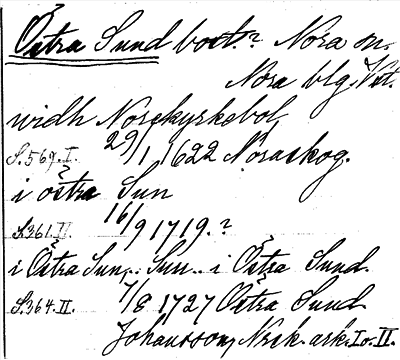 Östra Sund bost.? Nora sn.
Nora blg. Vst.
widh Norekyrkebol,
S.567.I. 29/1 1622 Noraskog.
i östra Sun
S.361.II. 16/9 1719.?
i Östra Sun.. Sun.. i Östra Sund.
S.364.II. 7/8 1727 Östra Sund
Johansson, Nrsk. ark. I o. II.